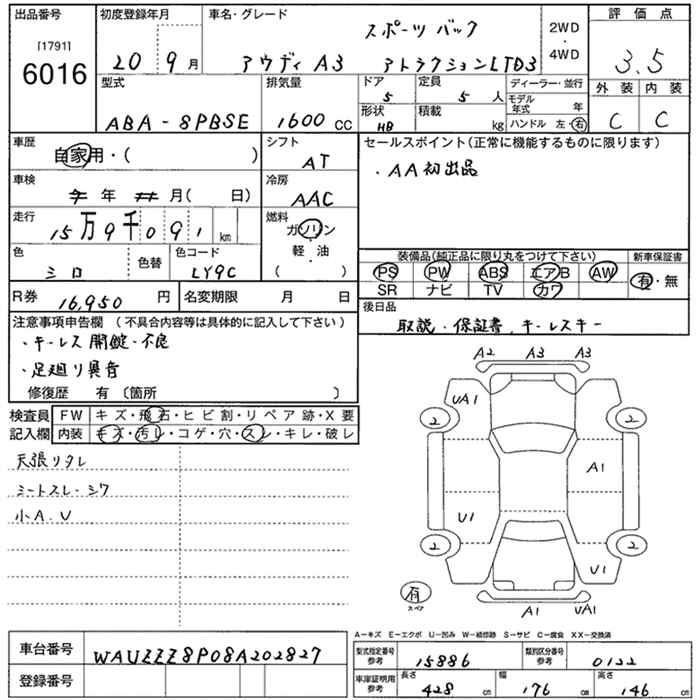 出品番号 初度登録年月 車名・グレード 評価点
[1791] スポーツバック 2WD
6016 20 9月 アウディA3 アトラクションLTD3 4WD 3.5
型式 排気量 ドア 定員 ディーラー・並行 外装 内装
5 5人 モデル年式 年
ABA-8PBSE 1600cc 形状 HB 積載 kg ハンドル 左・右 C C
車歴 シフト セールスポイント(正常に機能するものに限ります)
自家用・( ) AT ・AA初出品
車検 年 月( 日) 冷房 AAC
走行 15万9千091km 燃料 ガソリン
軽・油
( )
色 シロ 色替 色コード LY9C
装備品(純正品に限り丸をつけて下さい) 新車保証書
PS PW ABS エアB AW 有・無
SR ナビ TV カワ
R券 16,950円 名変期限 月 日 後日品
取説・保証書、キーレスキー
注意事項申告欄 (不具合内容等は具体的に記入して下さい)
・キーレス開錠不良
・足廻り異音
修復歴 有 〔箇所 〕
検査員 FW キズ・飛石・ヒビ割・リペア跡・X要
記入欄 内装 キズ・汚レ・コゲ・穴・スレ・キレ・破レ
天張リタレ
シートスレ・シワ
小A.U
A2 A3 A3
UA1
2 2
A1
U1
2 2
U1
有
スペア
A1 UA1
A-キズ E-エクボ U-凹み W-補修跡 S-サビ C-腐食 XX-交換済
車台番号 WAUZZZ8P08A202827 型式指定番号 参考 15886 類別区分番号 参考 0122
登録番号 車庫証明用 参考 長さ 428cm 幅 176cm 高さ 146cm